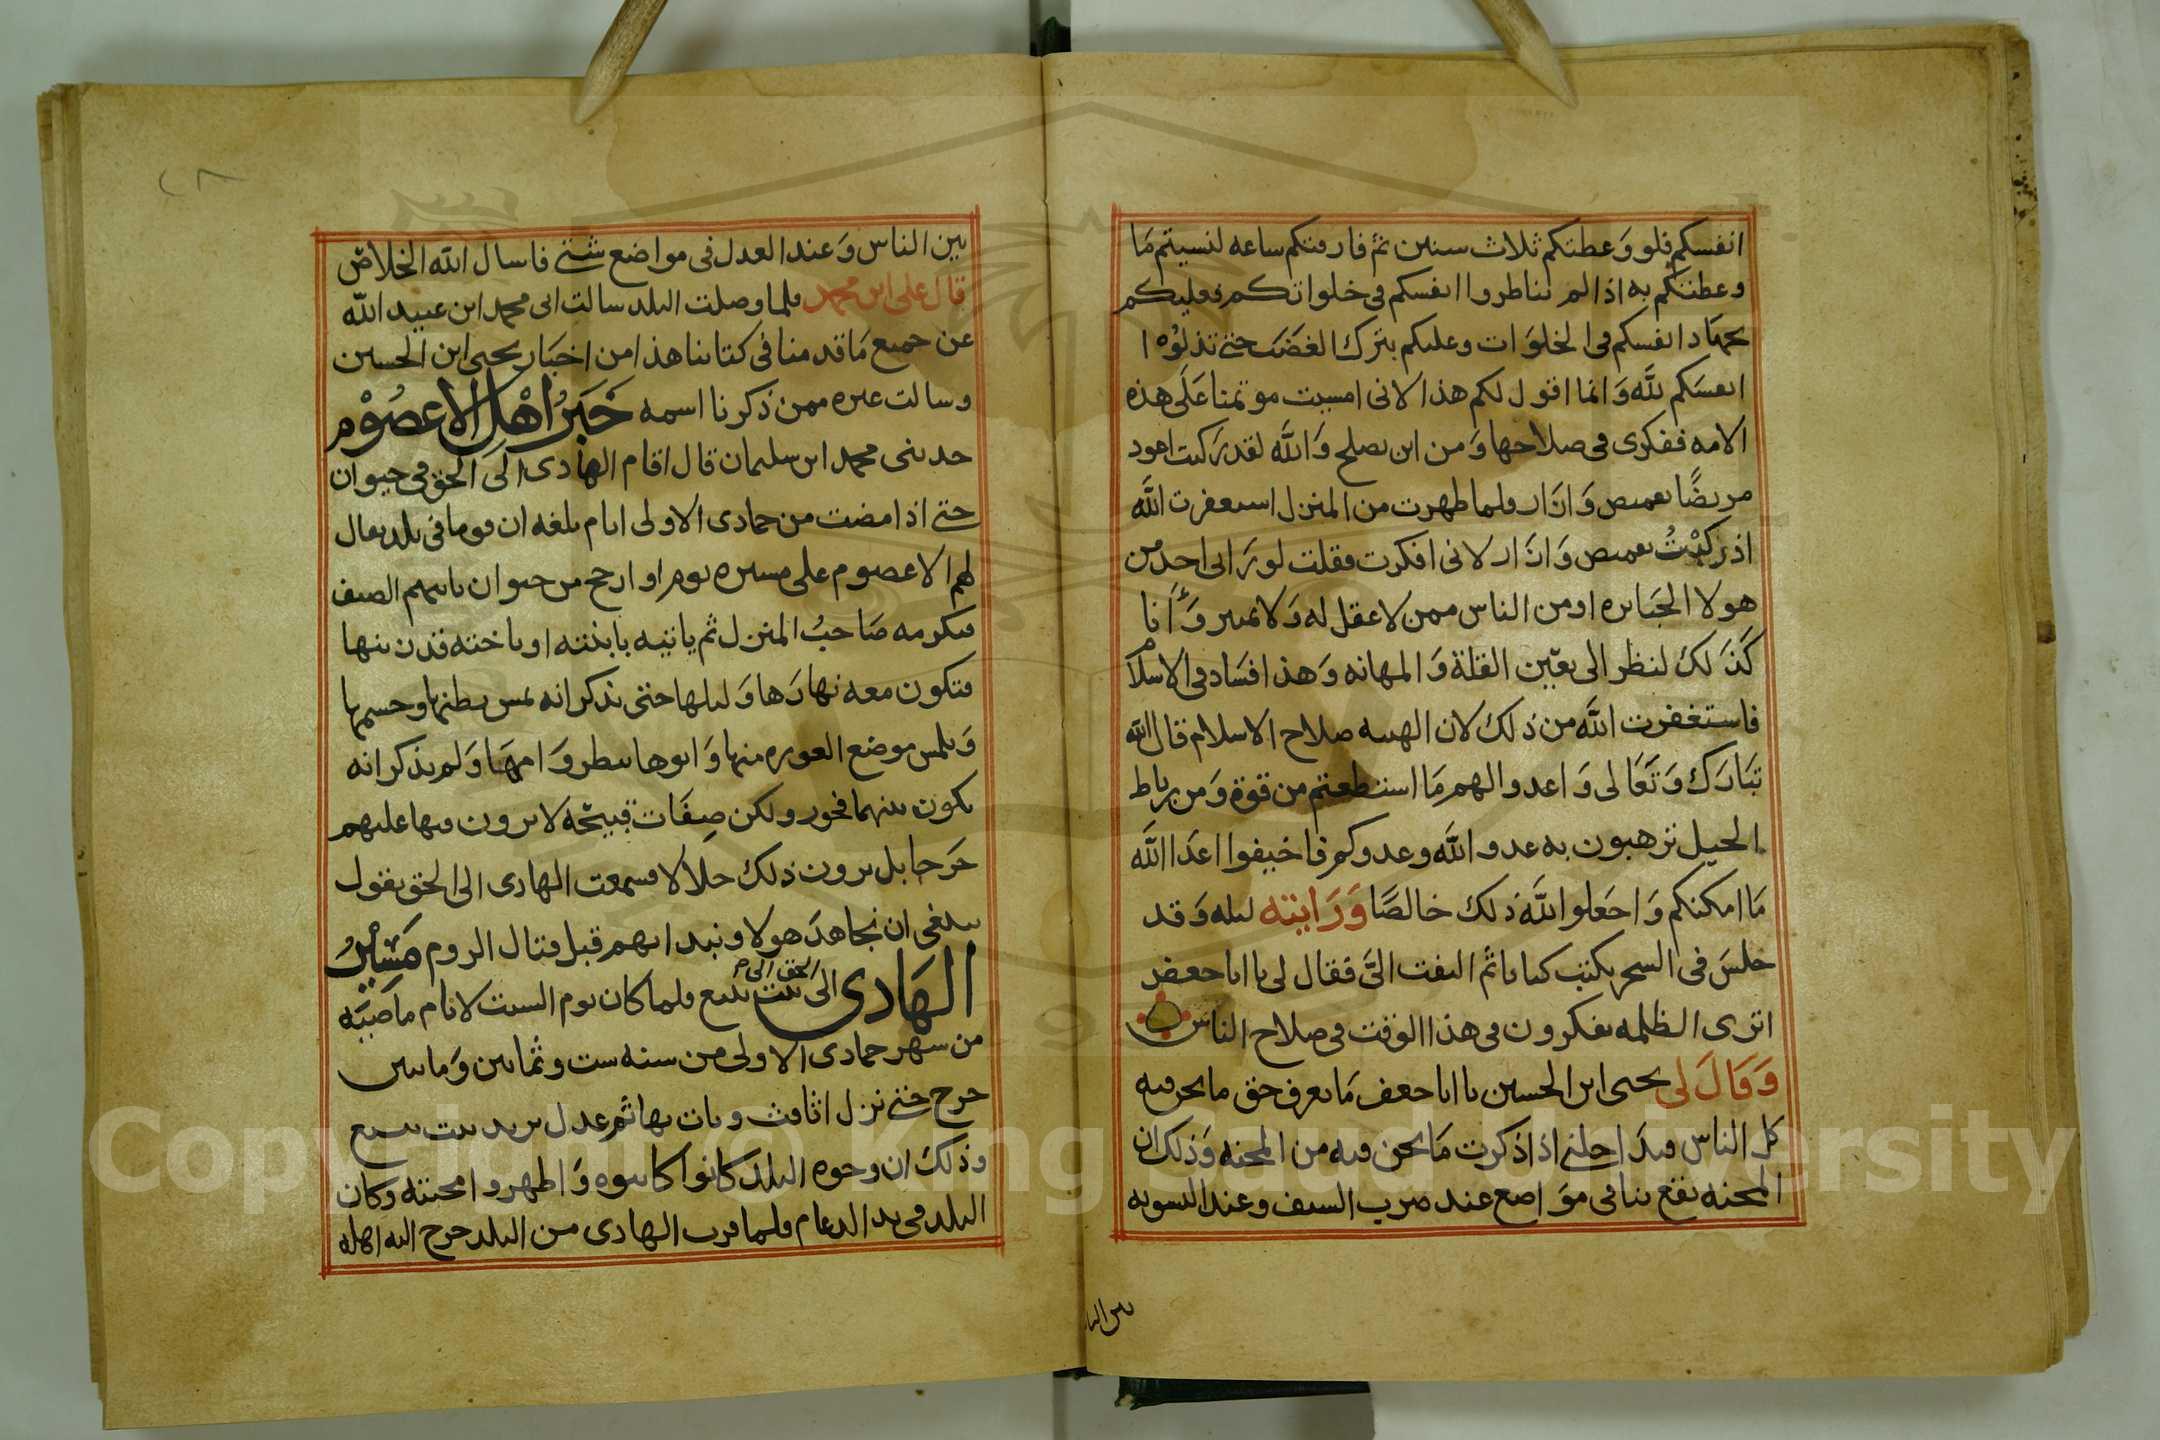 انفسكم فلو وعظتكم ثلاث سنين ثم فارقتكم ساعه لنسيتم ما
وعظتكم به اذا لم تناظروا انفسكم في خلواتكم فعليكم
بجهاد انفسكم في الخلوات وعليكم بترك الغضب حتى تذلوا
انفسكم لله وانما اقول لكم هذا لانى امسيت مؤتمنا على هذه
الامه ففكرى في صلاحها ومن اين يصلح والله لقد ركبت اعود
مريضا بقميص وازار ولما ظهرت من المنزل استغفرت الله
اذ ركبت بقميص وازار لانى افكرت فقلت لو رانى احد من
هولا الجبابره او من الناس ممن لا عقل له ولا تميير وأنا
كذلك لنظر الى بعين القلة والمهانه وهذا فساد في الاسلام
فاستغفرت الله من ذلك لان الهيبه صلاح الاسلام قال الله
تبارك وتعالى واعدوا لهم ما استطعتم من قوة ومن رباط
الخيل ترهبون به عدو الله وعدوكم فاخيفوا اعدا الله
ما امكنكم واجعلوا لله ذلك خالصا ورايته ليله وقد
جلس في السحر يكتب كتابا ثم التفت الى فقال لى يا ابا جعفر
اترى الظلمه يفكرون في هذا الوقت في صلاح الناس
وقال لى يحيى ابن الحسين يا ابا جعفر ما يعرف حق ما نحن فيه
كل الناس اذا ذكرت ما نحن فيه من المحنه وذلك ان
المحنه تقع بنا في مواضع عند ضرب السيف وعند التسويه
بين النا
٢٨
بين الناس وعند العدل في مواضع شتى فاسال الله الخلاص
قال على ابن محمد فلما وصلت البلد سالت ابى محمد ابن عبيد الله
عن جميع ما قدمنا في كتابنا هذا من اخبار يحيى ابن الحسين
وسالت غيره ممن ذكرنا اسمه خبر اهل الاعصوم
حدثنى محمد ابن سليمان قال اقام الهادى الى الحق في خيوان
حتى اذا مضت من جمادى الاولى ايام بلغه ان قوما في بلد يقال
لهم الاعصوم على مسيره يوم او ارجح من خيوان ياتيهم الضيف
فيكرمه صاحب المنزل ثم ياتيه بابنته او باخته قد زينها
فتكون معه نهارها وليلها حتى يذكر انه يمس بطنها وجسمها
ويلمس موضع العوره منها وابوها ينظر وامها ولم يذكر انه
يكون بينهما فجور ولكن صفات قبيحة لا يرون فيها عليهم
حرجا بل يرون ذلك حلالا فسمعت الهادى الى الحق يقول
ينبغى ان نجاهد هولا ونبدا بهم قبل قتال الروم مسير
الهادى الى الحق الى بيت بيع فلما كان يوم السبت لايام ماضيه
من شهر جمادى الاولى من سنه ست وثمانين ومايتين
خرج حتى نزل اثافت وبات بها ثم عدل يريد بيت
وذلك ان وجوه البلد كانوا كاتبوه واظهروا محبته وكان
البلد في يد الدعام فلما قرب الهادى من البلد خرج اليه اهله
Copyright © King Saud University